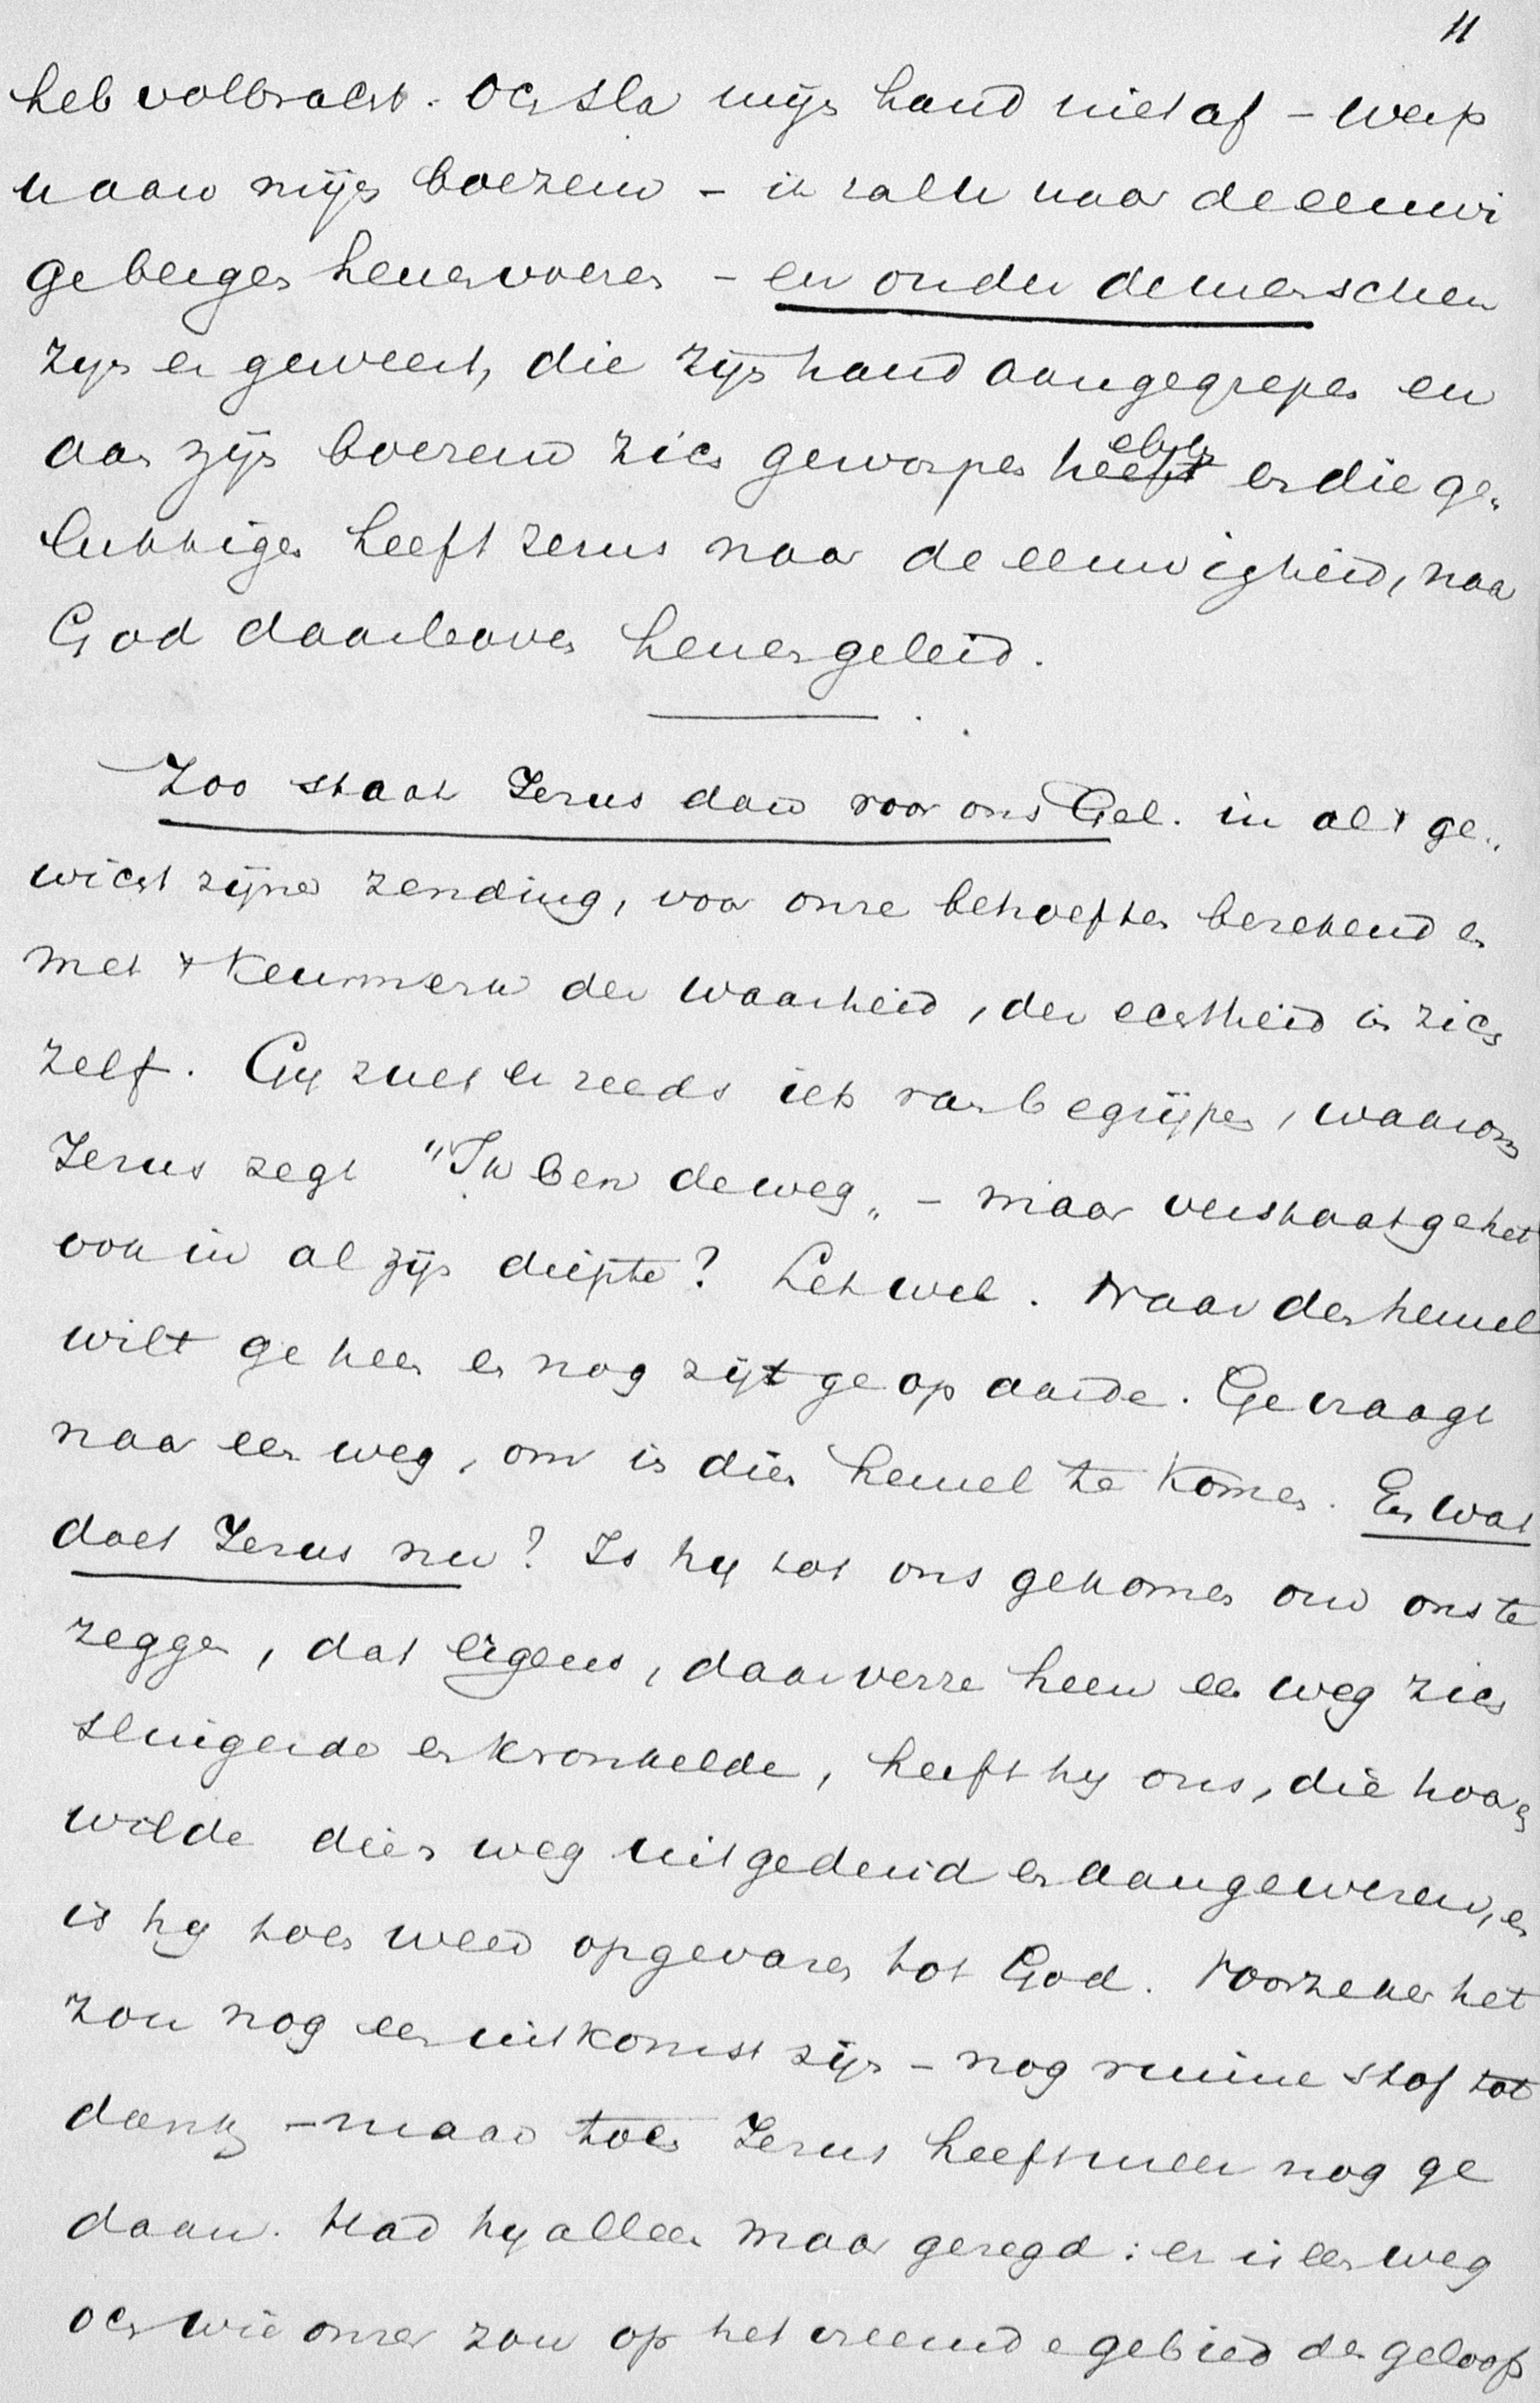 11
heb volbracht. Och sla mijn hand niet af – werp
u aan mijn boezem – ik zal u naar de eeuwi
ge bergen henenvoeren – en onder de menschen
zijn er geweest, die zijn hand aangegrepen en
aan zijn boezem zich geworpen hebben en die ge„
lukkigen heeft Jezus naar de eeuwigheid, naar
God daarboven henengeleid.
Zoo staat Jezus dan voor ons Gel. in al 't ge„
wicht zijner zending, voor onze behoeften berekend en
met 't Keurmerk der waarheid, der echtheid in zich
zelf. Gij zult er reeds iets van begrijpen, waarom
Jezus zegt "Ik ben de weg„ – maar verstaat ge het
ook in al zijn diepte? Let wel. Naar den hemel
wilt ge heen en nog zijt ge op aarde. Ge vraagt
naar een weg, om in dien hemel te komen. En wat
doet Jezus nu? Is hij tot ons gekomen om ons te
zeggen, dat ergens, daar verre heen een weg zich
slingerde en kronkelde, heeft hij ons, die hooren
wilde dien weg uitgeduid en aangewezen, en
is hij toen weer opgevaren tot God. Voorzeker het
zou nog een uitkomst zijn – nog ruime stof tot
dank – maar toen Jezus heeft meer nog ge
daan. Had hij alleen maar gezegd: er is een weg
och wie onzer zou op het vreemde gebied des geloofs